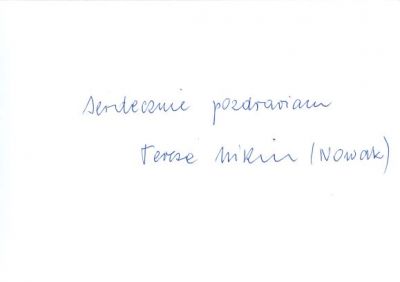 Serdecznie pozdrawiam
Teresa (Nowak)